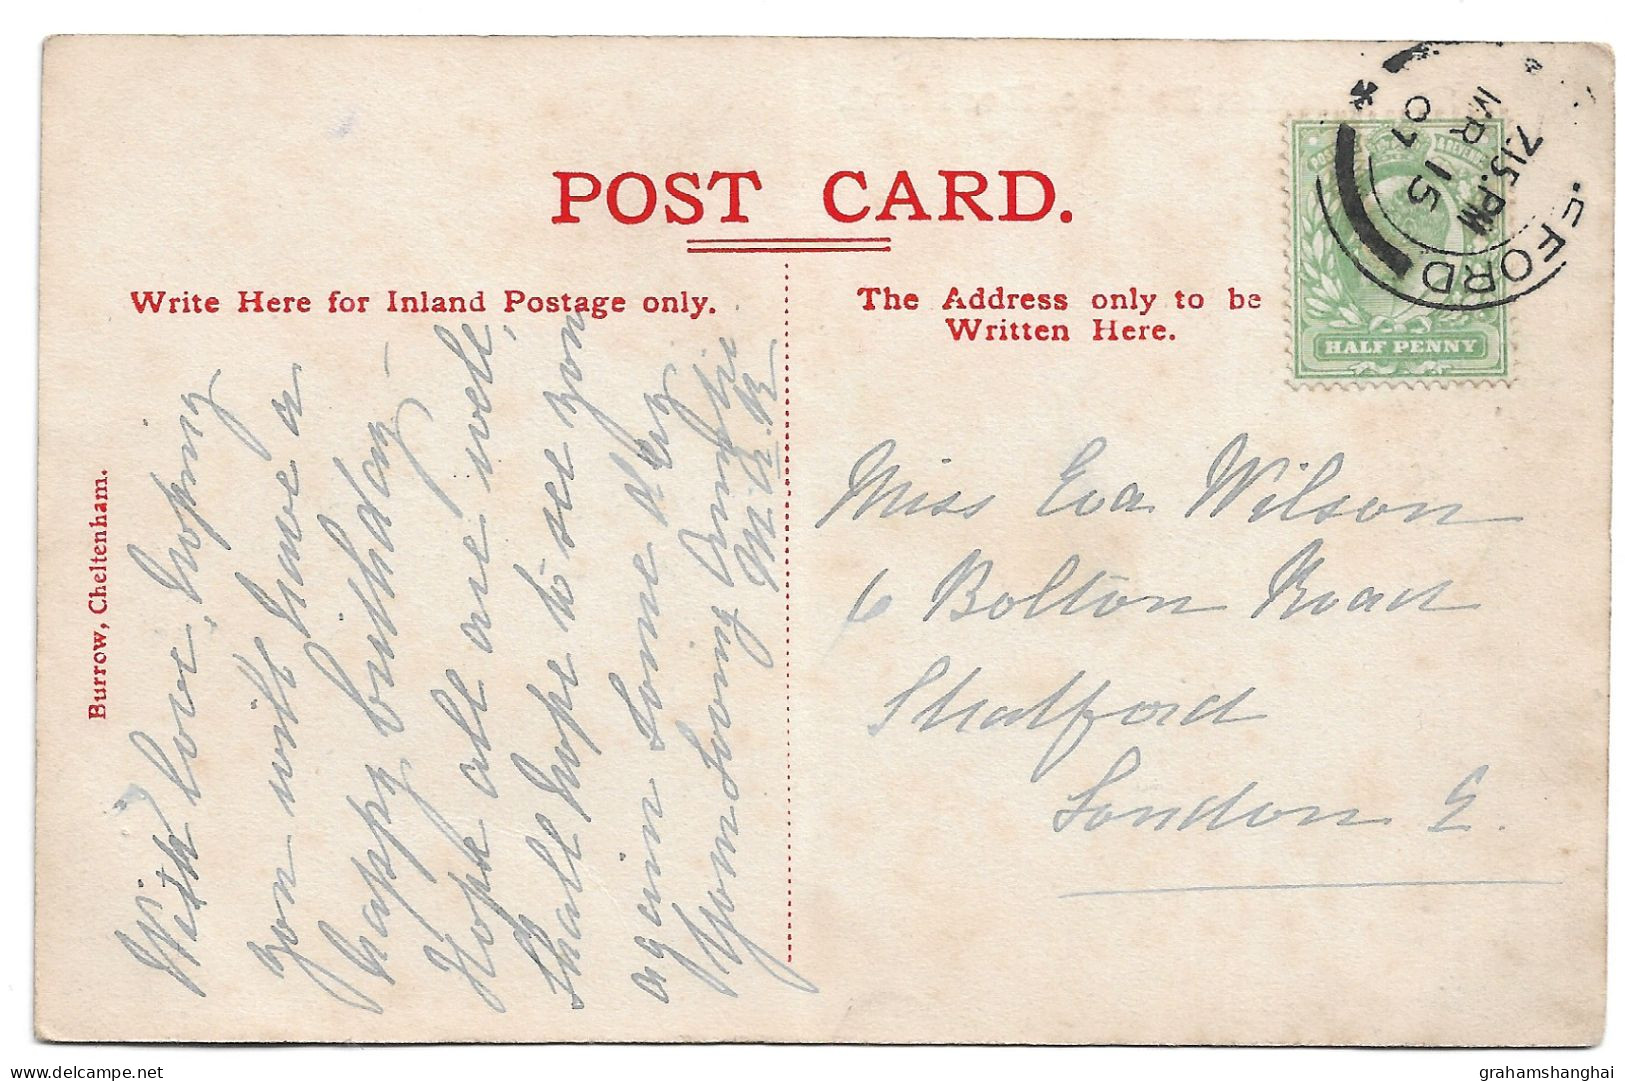 POST CARD.
Write Here for Inland Postage only.
The Address only to be
Written Here.
Burrow, Cheltenham.
With love, hoping
you will have a
happy birthday-
Hope all are well,
shall hope to see you
again some day
Your loving Auntie
M.A.R
Miss Eva Wilson
6 Bolton Road
Stratford
London E.
7.15.PM
MR 15
07
FORD
POSTAGE & REVENUE
HALF PENNY
grahamshanghai